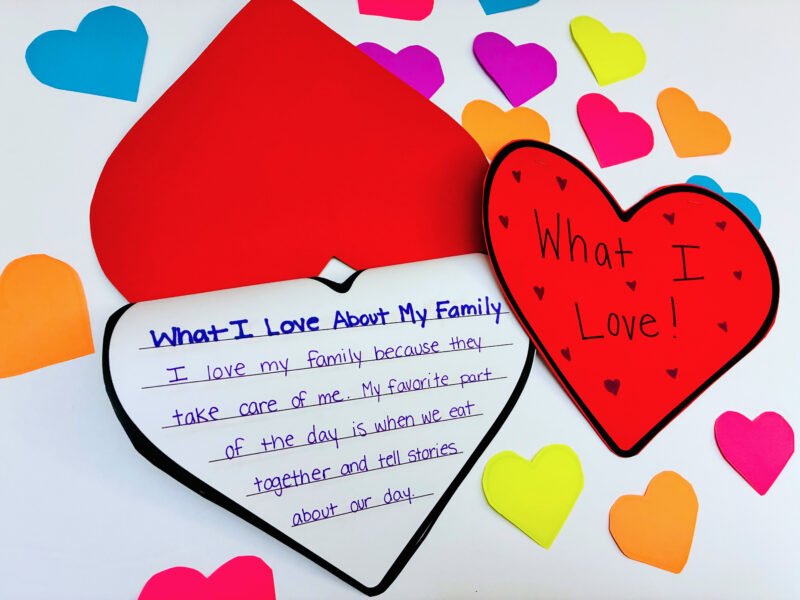 What I Love About My Family
I love my family because they
take care of me. My favorite part
of the day is when we eat
together and tell stories
about our day.
What I
Love!